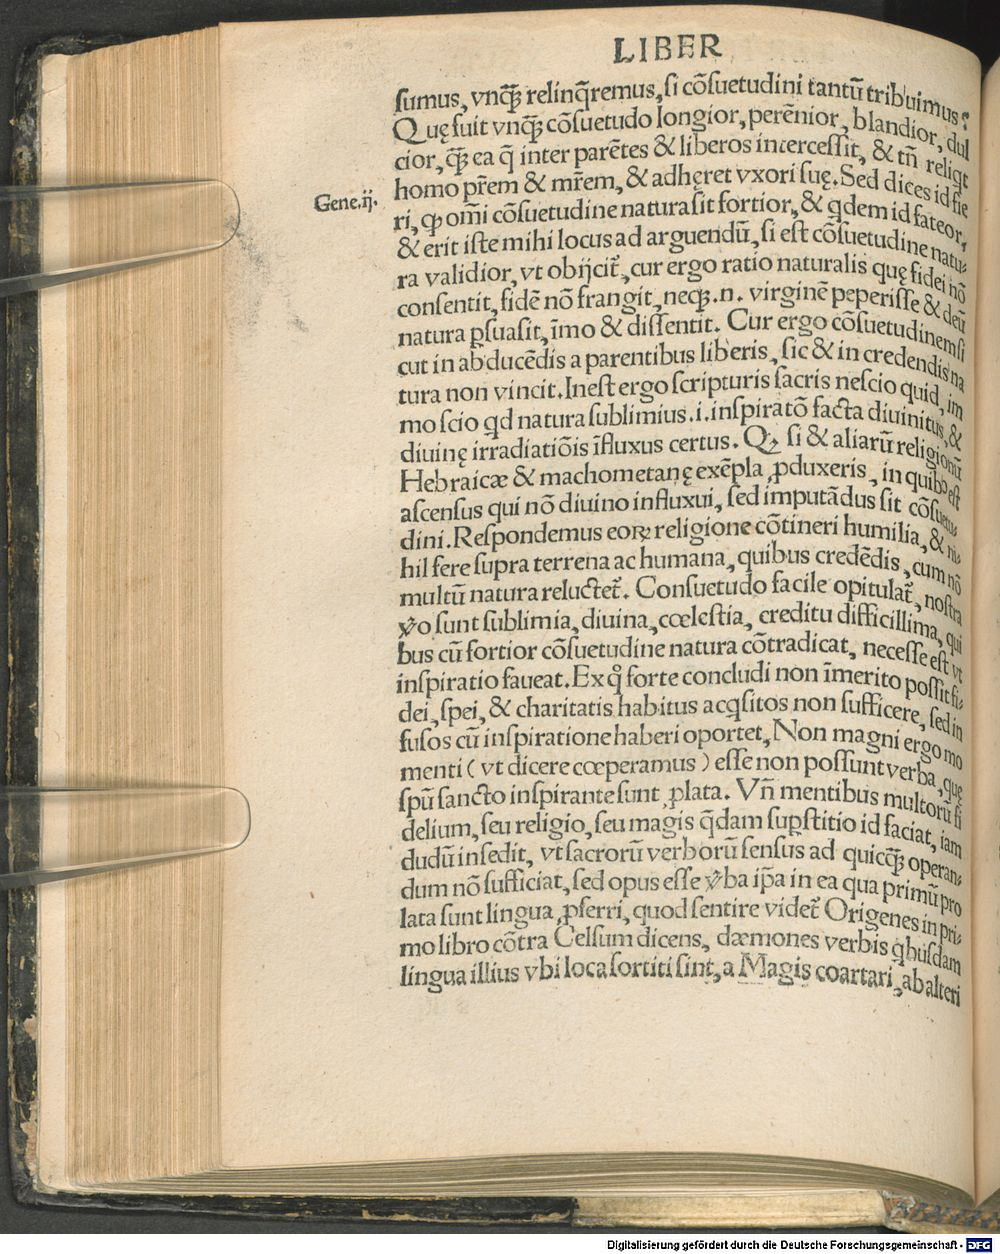 LIBER
sumus, vnq̃ꝫ relinq̃remus, si cõsuetudini tantũ tribuimus?
Quę fuit vnq̃ꝫ cõsuetudo longior, perẽnior, blandior, dul
cior, q̃ꝫ ea q̃ inter parẽtes & liberos intercessit, & tñ reliqt
Gene.ij.
homo pr̃em & mr̃em, & adhęret vxori suę. Sed dices id fie
ri, ꝙ om̃i cõsuetudine natura sit fortior, & qdem id fateor,
& erit iste mihi locus ad arguendũ, si est cõsuetudine natu⸗
ra validior, vt obijcit᷑, cur ergo ratio naturalis quę fidei nõ
consentit, fidẽ nõ frangit, neqꝫ .n. virginẽ peperisse & deũ
natura ꝑsuasit, ĩmo & dissentit. Cur ergo cõsuetudinem si
cut in abducẽdis a parentibus liberis, sic & in credendis na
tura non vincit. Inest ergo scripturis sacris nescio quid, im
mo scio qd natura sublimius .i. inspiratõ facta diuinitus, &
diuinę irradiatiõis ĩfluxus certus. Qꝫ si & aliarũ religionũ
Hebraicæ & machometanę exẽpla ꝓduxeris, in quibꝰ est
ascensus qui nõ diuino influxui, sed imputãdus sit cõsuetu⸗
dini. Respondemus eoꝝ religione cõtineri humilia, & ni⸗
hil fere supra terrena ac humana, quibus credẽdis, cum nõ
multũ natura reluctet᷑. Consuetudo facile opitulat᷑, nostra
ꝟo sunt sublimia, diuina, cœlestia, creditu difficillima, qui
bus cũ fortior cõsuetudine natura cõtradicat, necesse est vt
inspiratio faueat. Ex qͦ forte concludi non ĩmerito possit fi⸗
dei, spei, & charitatis habitus acqsitos non sufficere, sed in
fusos cũ inspiratione haberi oportet, Non magni ergo mo
menti ( vt dicere cœperamus ) esse non possunt verba, quę
spũ sancto inspirante sunt ꝓlata. Vñ mentibus multorũ fi
delium, seu religio, seu magis q̃dam supstitio id faciat, iam
dudũ insedit, vt sacrorũ verborũ sensus ad quicq̃ꝫ operan⸗
dum nõ sufficiat, sed opus esse ꝟba ip̃a in ea qua primũ pro
lata sunt lingua ꝓferri, quod sentire videt᷑ Origenes in pri⸗
mo libro cõtra Celsum dicens, dæmones verbis q̃busdam
lingua illius vbi loca sortiti sint, a Magis coartari, ab alteri
Digitalisierung gefördert durch die Deutsche Forschungsgemeinschaft - DFG